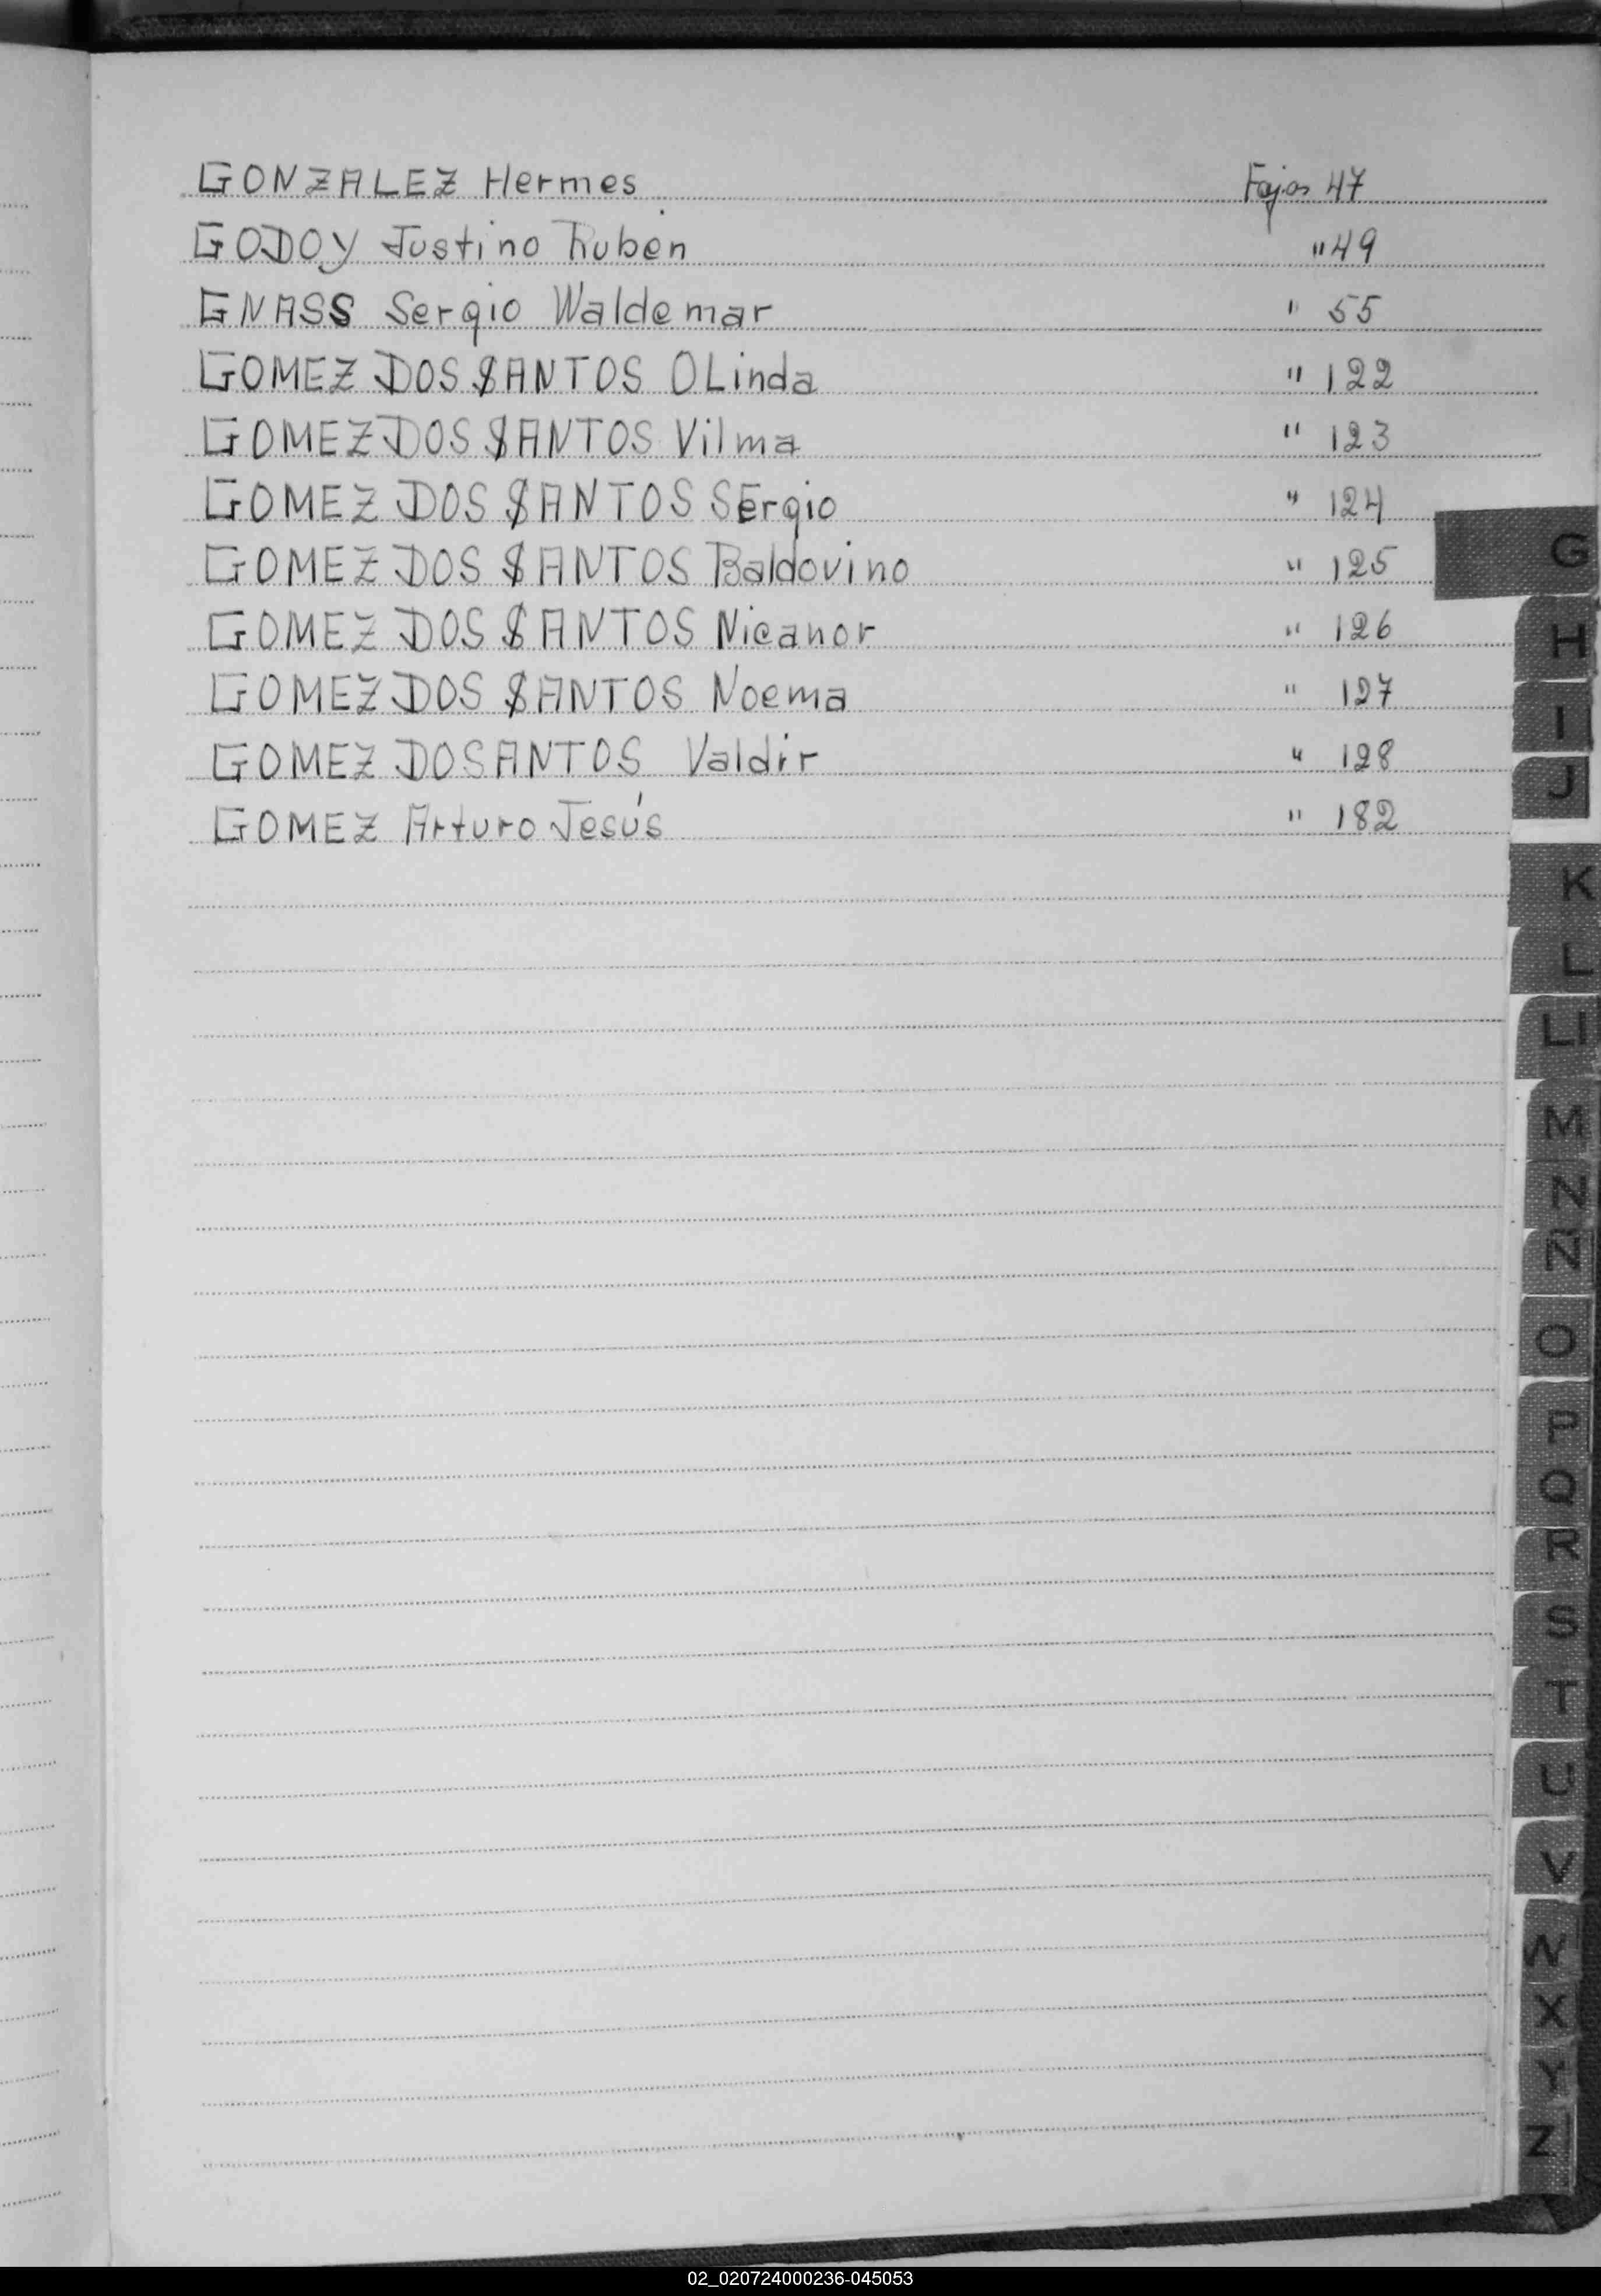 GONZALEZ Hermes Fojas 47
GODOY Justino Rubén " 49
GNASS Sergio Waldemar " 55
GOMEZ DOS SANTOS OLinda " 122
GOMEZ DOS SANTOS Vilma " 123
GOMEZ DOS SANTOS SErgio " 124
GOMEZ DOS SANTOS Baldovino " 125
GOMEZ DOS SANTOS Nicanor " 126
GOMEZ DOS SANTOS Noema " 127
GOMEZ DOSANTOS Valdir " 128
GOMEZ Arturo Jesús " 182
G
H
I
J
K
L
Ll
M
N
Ñ
O
P
Q
R
S
T
U
V
W
X
Y
Z
02_020724000236-045053